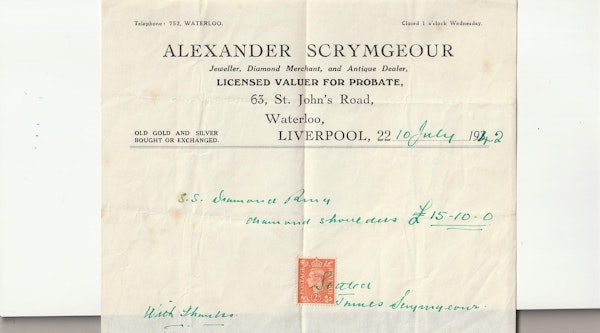 Telephone: 752, WATERLOO.
Closed 1 o'clock Wednesday.
ALEXANDER SCRYMGEOUR
Jeweller, Diamond Merchant, and Antique Dealer,
LICENSED VALUER FOR PROBATE,
63, St. John's Road,
Waterloo,
OLD GOLD AND SILVER
BOUGHT OR EXCHANGED.
LIVERPOOL, 22 10 July 1942
S.S. Diamond Ring
diamond shoulders £15-10-0
POSTAGE
With Thanks.
James Scrymgeour.